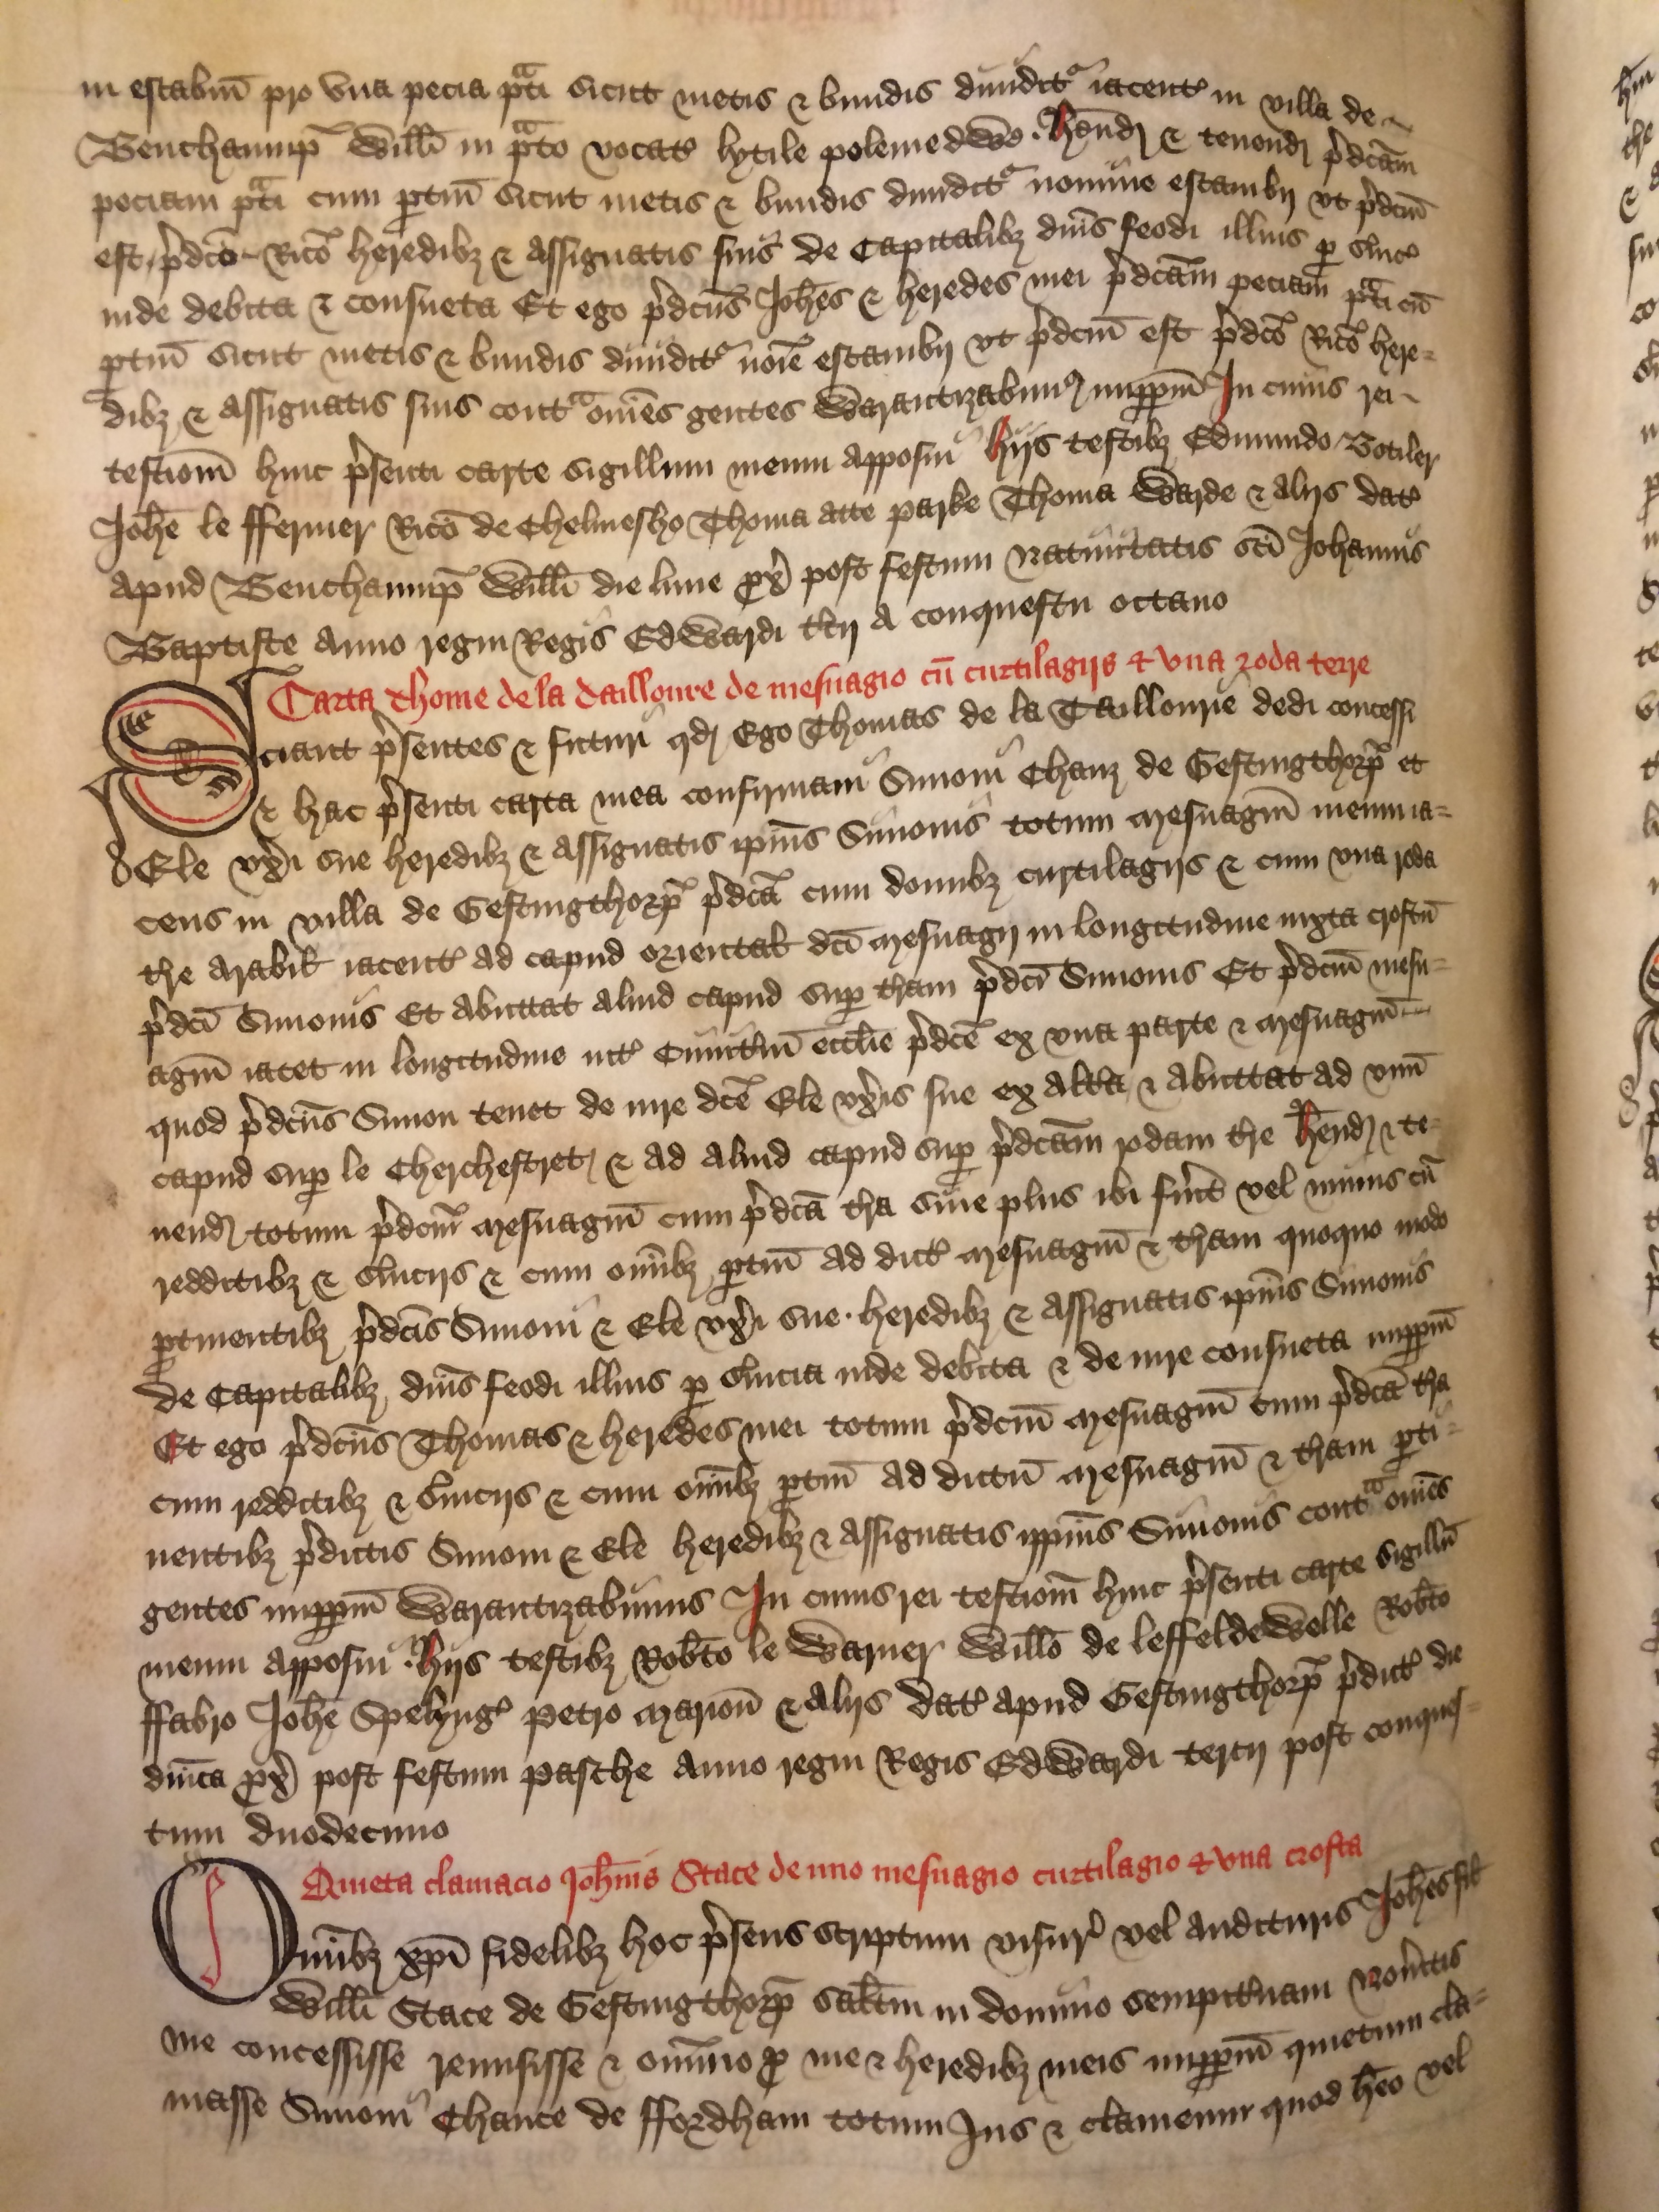 in escabiū pro vna pecia pᵃti sicut metis & bundis diuidit iacent in villa de
Beuchaump Willi in pᵃto vocat lytile polemedwe. Hēnd & tenend p̄dcam
peciam pᵃti cum ptiñ sicut metis & bundis diuidit nomine escambij vt p̄dcm̄
est p̄dco Rico heredibȝ & assignatis suis de Capitalibȝ dñis feodi illius p suic
inde debita & consueta Et ego p̄dcus Johes & heredes mei p̄dcam peciam pᵃti cū
ptiñ sicut metis & bundis diuidit noīe escambij vt p̄dcm̄ est p̄dco Rico here=
dibȝ & assignatis suis contᵃ omēs gentes Warantizabimꝰ imppm̄ In cuius rei
testiom̄ huic p̄senti carte sigillum meum apposui hijs testibȝ Edmundo Botiler
Johe le ffermer Rico de Chelmesho Thoma atte parke Thoma Warde & alijs dat
apud Beuchaump Willi die lune px̄ post festum Natiuitatis sci Johannis
Baptiste Anno regni Regis Edwardi tcij A conquestu octauo
Carta thome de la tailloure de mesuagio cū curtilagijs & vna roda terre
Sciant p̄sentes & futuri qd Ego Thomas de la Taillourie dedi concessi
& hac p̄senti carta mea confirmaui Simoni Chanȝ de Gestingthorp et
Ele vxi sue heredibȝ & assignatis ipius Simonis totum mesuagiū meum ia=
cens in villa de Gestingthorp p̄dca cum domibȝ curtilagijs & cum vna roda
tre arabil iacent ad capud oriental dci mesuagij in longitudine iuxta croftū
p̄dci Simonis Et abuttat aliud capud sup tram p̄dci Simonis Et p̄dcm̄ mesu=
agiū iacet in longitudine int Cimitiū ecclie p̄dce ex vna parte & mesuagiū
quod p̄dcus Simon tenet de iure dce Ele vxis sue ex altra & abuttat ad vnū
capud sup le Cherchestret & ad aliud capud sup p̄dcam rodam tre Hēnd & te=
nend totum p̄dcm̄ mesuagiū cum p̄dca tra siue plus ibi fuit vel minus cū
redditibȝ & suicijs & cum omībȝ ptiñ ad dict mesuagiū & tram quoquo modo
ptinentibȝ p̄dcis Simoni & Ele vxi sue. heredibȝ & assignatis ipius Simonis
de Capitalibȝ dñis feodi illius p suicia inde debita & de iure consueta imppm̄
Et ego p̄dcus Thomas & heredes mei totum p̄dcm̄ mesuagiū cum p̄dca tra
cum redditibȝ & suicijs & cum omībȝ ptiñ ad dictū mesuagiū & tram pti=
nentibȝ p̄dictis Simoni & Ele heredibȝ & assignatis ippius Simonis contᵃ omēs
gentes imppm̄ Warantizabimus In cuius rei testiom̄ huic p̄senti carte sigillū
meum apposui. Hijs testibȝ Robto le Warner Willo de leffeldewelle Robto
ffabro Johe Spelyng petro Marion & alijs dat apud Gestingthorp p̄dict die
dnica px̄ post festum pasche Anno regni Regis Edwardi tercij post conques=
tum duodecimo
Quieta clamacio Johnis Stace de uno mesuagio curtilagio & vna crofta
Omībȝ xpi fidelibȝ hoc p̄sens scriptum visur vel audituris Johes fil
Willi Stace de Gestingthorp saltm in domino sempitnam Noūitis
me concessisse remisisse & omīno p me & heredibȝ meis imppm̄ quietum cla=
masse Simoni Chance de ffordham totum Jus & clameum quod heo vel